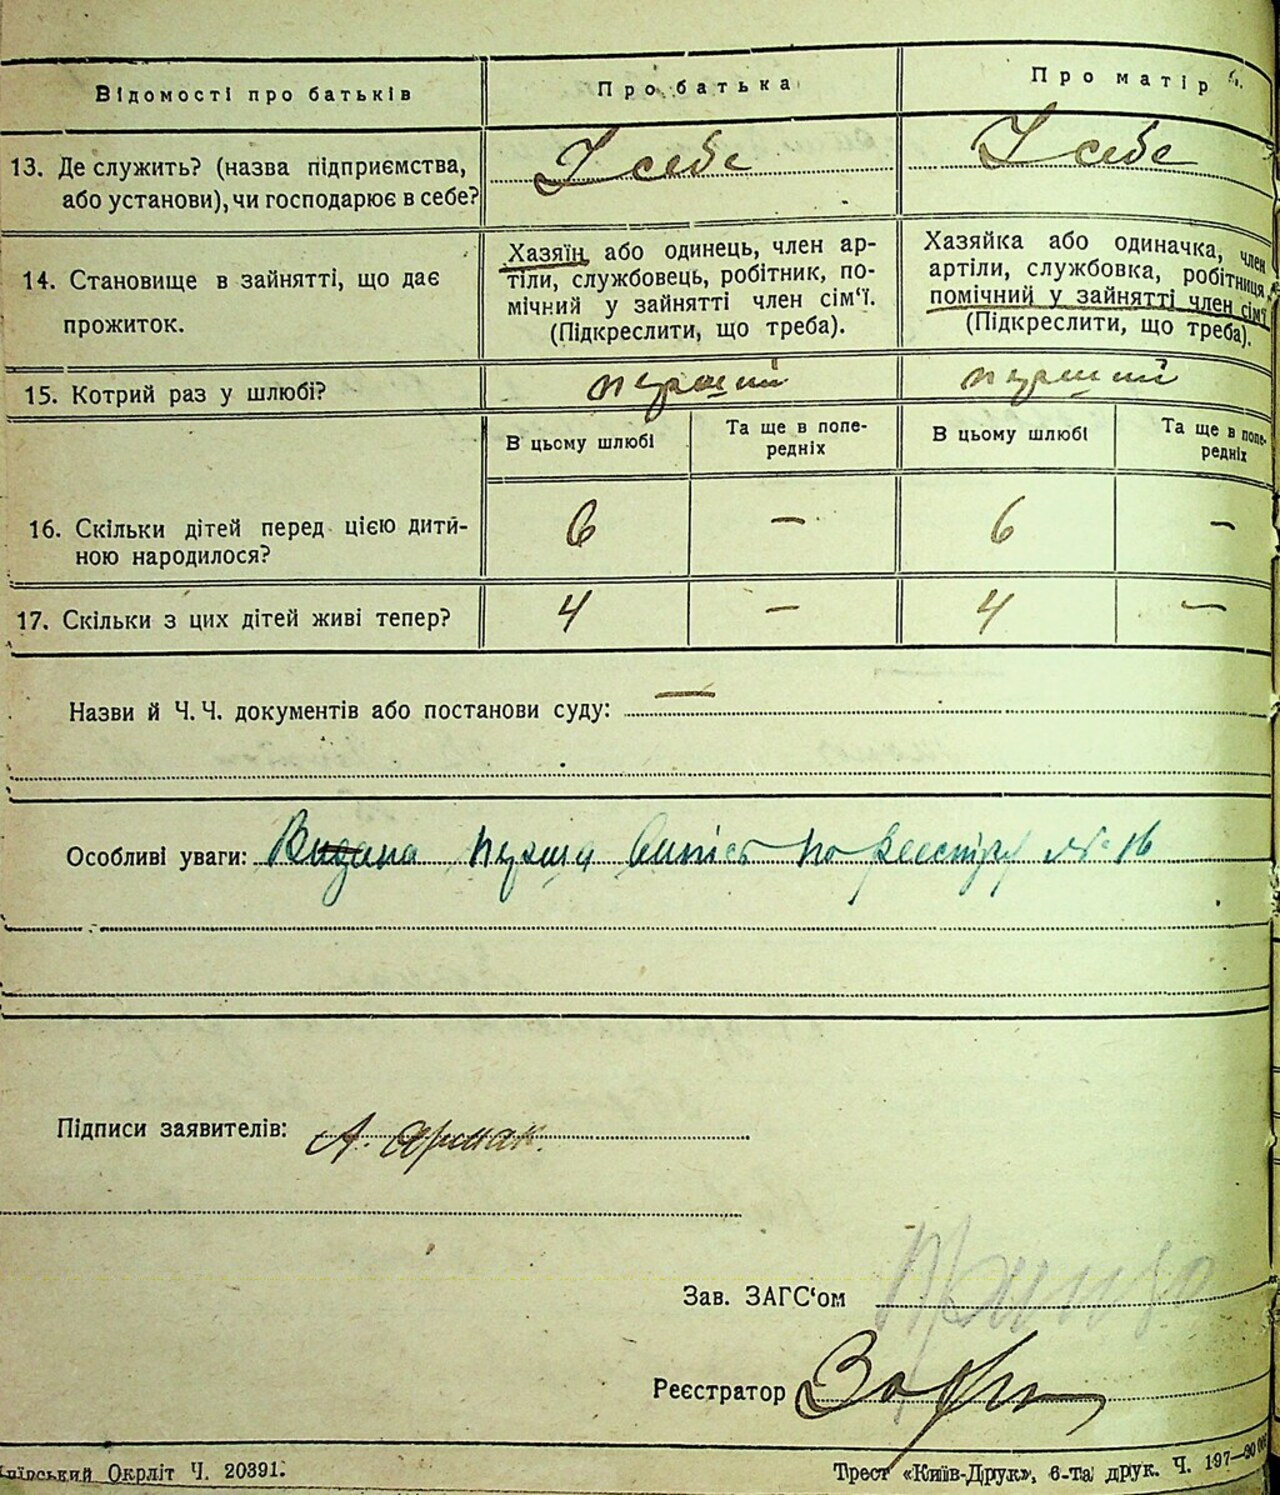 Відомості про батьків
Про батька
Про матір
13. Де служить? (назва підприємства,
або установи), чи господарює в себе?
У себе
У себе
14. Становище в зайнятті, що дає
прожиток.
Хазяїн або одинець, член ар-
тіли, службовець, робітник, по-
мічний у зайнятті член сім‘ї.
(Підкреслити, що треба).
Хазяйка або одиначка, член
артіли, службовка, робітниця,
помічний у зайнятті член сім‘ї
(Підкреслити, що треба).
15. Котрий раз у шлюбі?
перший
перший
В цьому шлюбі
Та ще в попе-
редніх
В цьому шлюбі
Та ще в попе-
редніх
16. Скільки дітей перед цією дити-
ною народилося?
6
—
6
—
17. Скільки з цих дітей живі тепер?
4
—
4
—
Назви й Ч. Ч. документів або постанови суду: —
Особливі уваги: Видана перша випись по реєстру № 16
Підписи заявителів: А. Ярмак.
Зав. ЗАГС‘ом
Реєстратор
Окрліт Ч. 20391.
Трест «Київ-Друк», 6-та друк. Ч. 197—